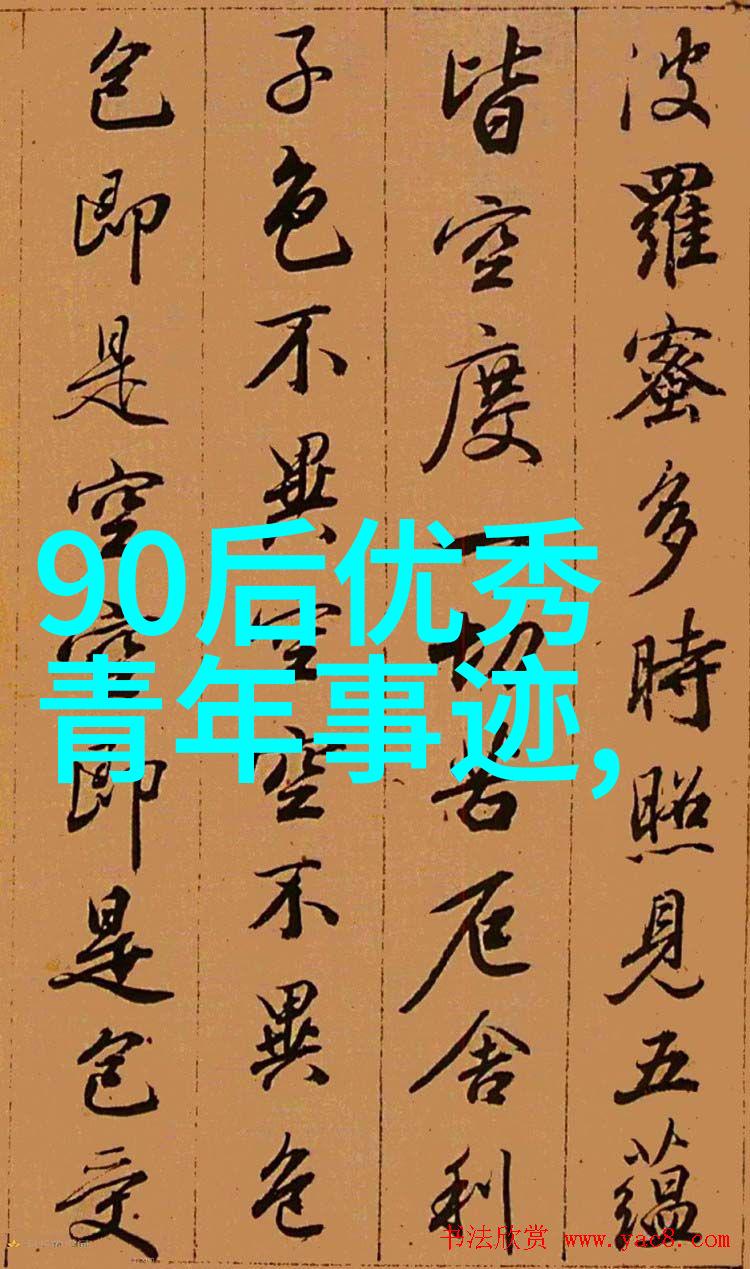 波羅蜜多時照見五蘊
皆空度一切苦厄舍利
子色不異空空不異色
色即是空空即是色受
90后优秀
青年事迹,
书法欣赏 www.yac8.com